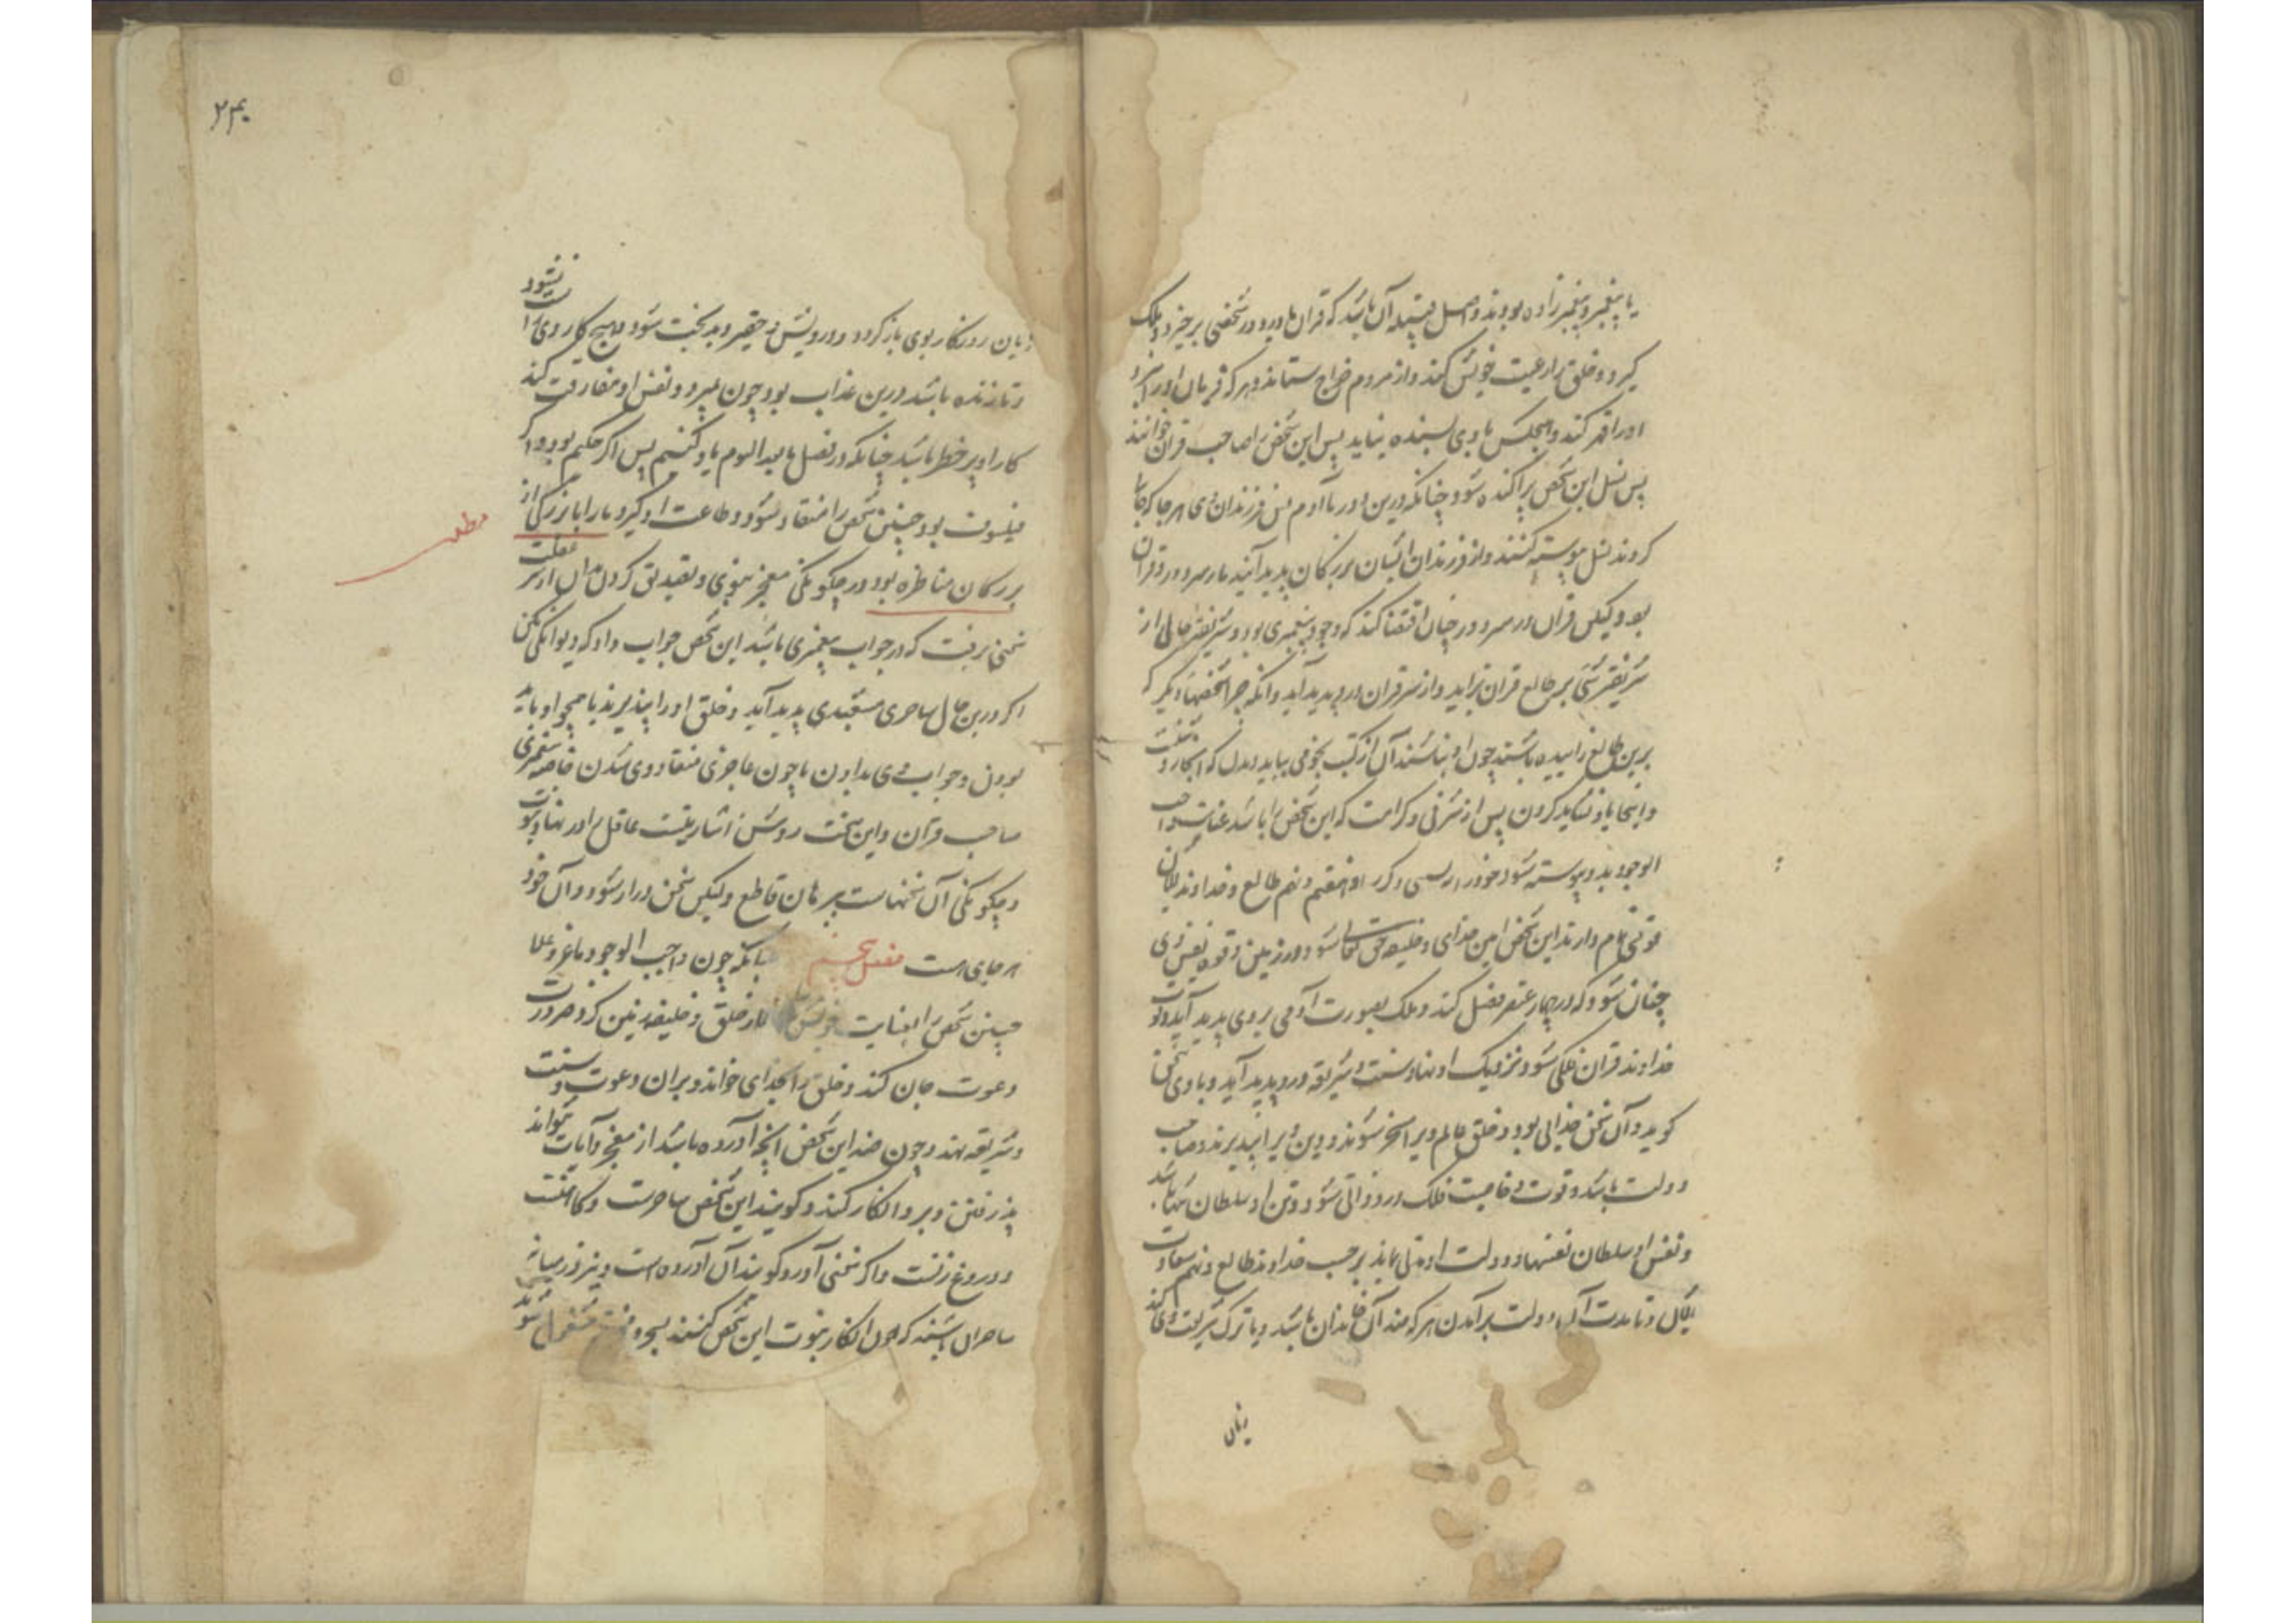 یا پیغمبر و پیغمبرزاده بودند و اصل قبیله آن باشد که قران با دور در شخصی برخیزد و ملک
گیرد و خلق را رعیت خویش کند و از مردم خراج ستاند و هر که فرمان او را نبرد
او را قهر کند و هیچکس با وی بسنده نیاید پس این شخص را صاحب قران خوانند
پس نسل این شخص پراکنده شود چنانکه درین دور با آدم پس فرزندان وی هر جا که
گردند نسل پیوسته کنند و از فرزندان ایشان بزرگان پدید آیند بار سر دور و قران
بود ولیکن قران در سر دور چنان اقتضا کند که وجود پیغمبری بود و شریفتر حالی از
شریفتر شی بر طالع قران بزاید و از سر قران درو پدید آید و آنکه چرا شخصهاء دیگر که
برین طالع زاییده باشند چون او نباشند آن از کتب نجومی بباید
و اینجا یاد نشاید کردن پس از شرفی و کرامت که این شخص را باشد عنایت واجب
الوجود بدو پیوسته شود و خداوند طالع و خداوند
قوتی تمام دارند این شخص امین خدای و خلیفه حق تعالی شود در زمین و قوه نفس وی
چنان شود که در چهار عنصر فعل کند و ملک بصورت آدمی بر وی پدید آید
خداوند قران ملکی شود و نزدیک او نهاد سنت و شریعه درو پدید آید و با وی سخن
گوید و آن سخن خدایی بود و خلق عالم ویرا مسخر شوند و دین ویرا بپذیرند و صاحب
دولت باشد و قوت و خاصیت فلک درو ذاتی شود و تن او سلطان تنها باشد
و نفس او سلطان نفسها و دولت او بماند بر حسب خداوند طالع و سهم سعادت
و تا مدت آن دولت برآمدن هر که ضد آن خاندان باشد و یا ترک شریعت وی کند
زیان
۲۴۰
زیان روزگار بوی باز گردد و درویش و حقیر و بدبخت شود و هیچ کار وی راست نشود
و تا زنده باشد درین عذاب بود چون بمیرد و نفس او مفارقت کند
کار او پر خطر باشد چنانکه در فصل ما بعد الموت یاد کنیم پس اگر حکیم بود و اگر
فیلسوف بود چنین شخص را منقاد شود و طاعت او گیرد ما را با بزرگی از
مطلب
بزرگان مناظره بود در چگونگی معجز نبوی و تصدیق کردن بدان از سر غفلت
سخنی برفت که در جواب پیغمبری باشد این شخص جواب داد که دیوانگی مکن
اگر درین حال ساحری مشعبدی پدید آید و خلق او را بپذیرند یا همچو او باید
بودن و جواب وی بدادن یا چون عاجزی منقاد وی شدن خاصه پیغمبری
صاحب قران و این سخت روشن اشارتیست عاقل را در نهاد نبوت
و چگونگی آن سخنهاست ببرهان قاطع ولیکن سخن دراز شود و آن خود
هر جای هست فصل پنجم چنانکه چون واجب الوجود عز و علا
چنین شخص را بعنایت خویش از خلق و خلیفه زمین کرد ضرورت
دعوت جان کند و خلق را بخدای خواند و بران دعوت و سنت
و شریعه نهد و چون ضد این شخص آنچه آورده باشد از معجز و آیات نتواند
پذیرفتن و برو انکار کند و گویند این شخص ساحرست و کاهنست
و دروغ زنست و اگر سخنی آورد گویند آن آورده است و نیز در میانه
ساحران باشند که چون انکار نبوت این شخص کنند بسحر مشغول شوند